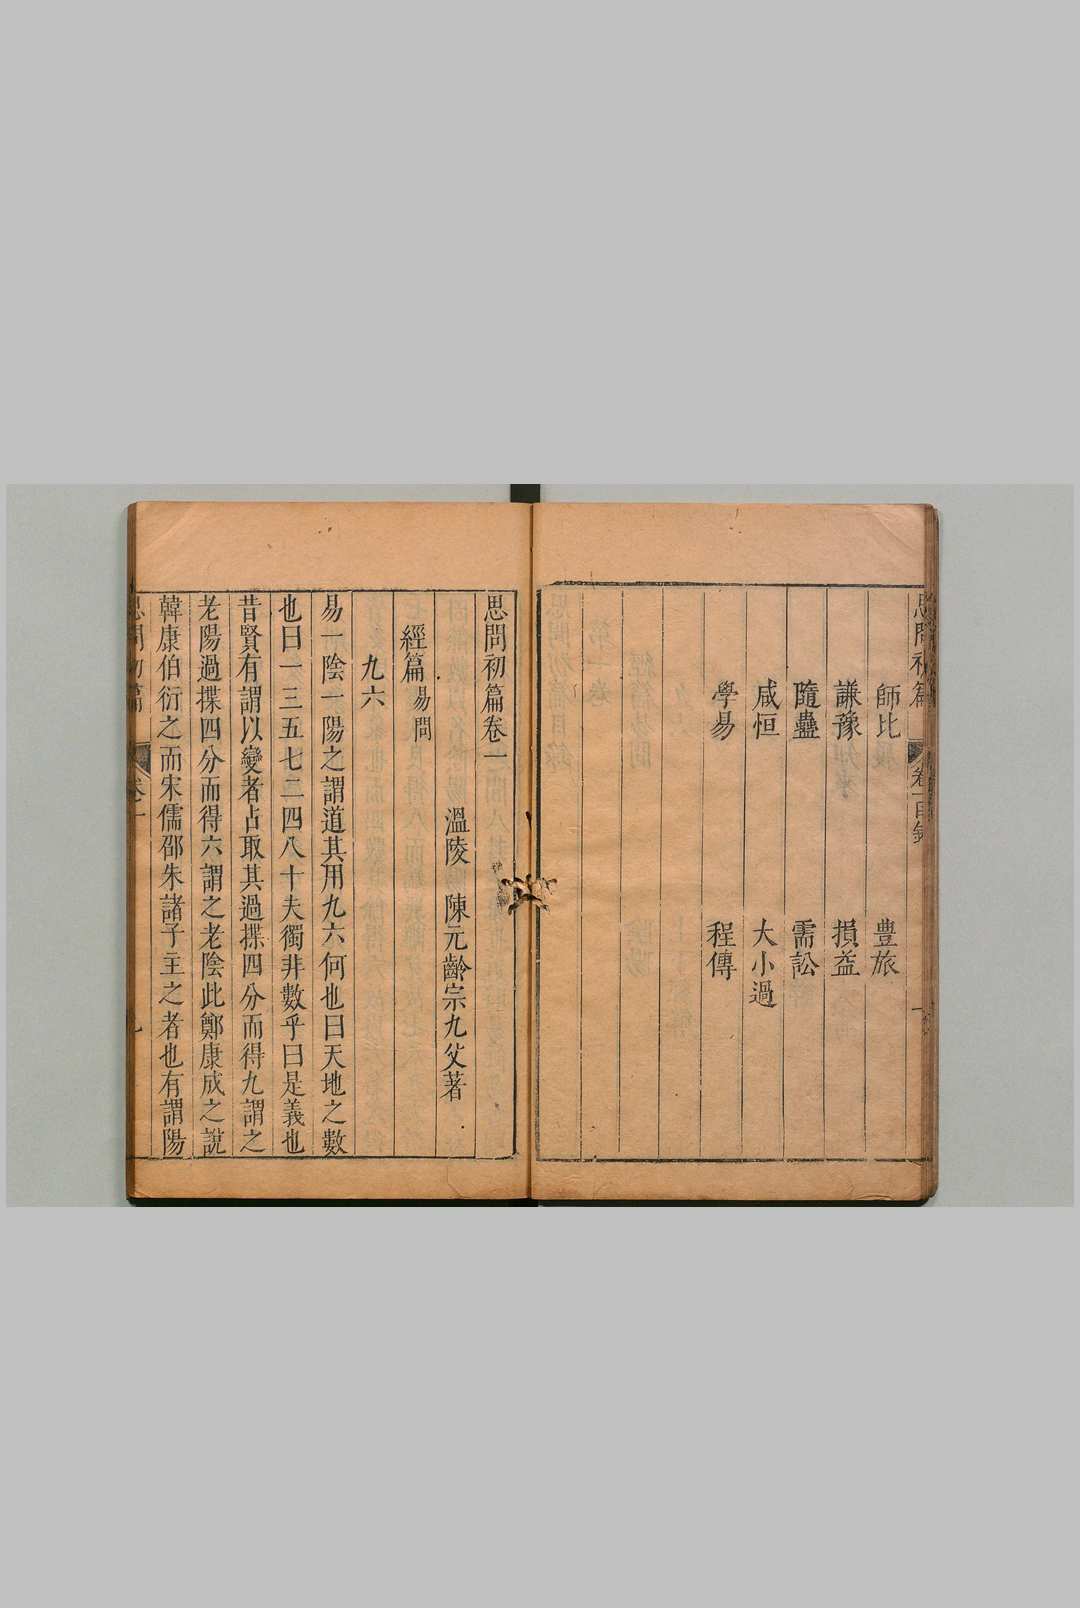 思問初篇 卷一目錄 一
師比 豊旅
謙豫 損益
隨蠱 需訟
咸恒 大小過
學易 程傳
思問初篇卷一
溫陵 陳元齡宗九父著
經篇 易問
九六
易一陰一陽之謂道其用九六何也曰天地之數
也曰一三五七二四八十夫獨非數乎曰是義也
昔賢有謂以變者占取其過揲四分而得九謂之
老陽過揲四分而得六謂之老陰此鄭康成之說
韓康伯衍之而宋儒邵朱諸子主之者也有謂陽
思問初篇 卷一